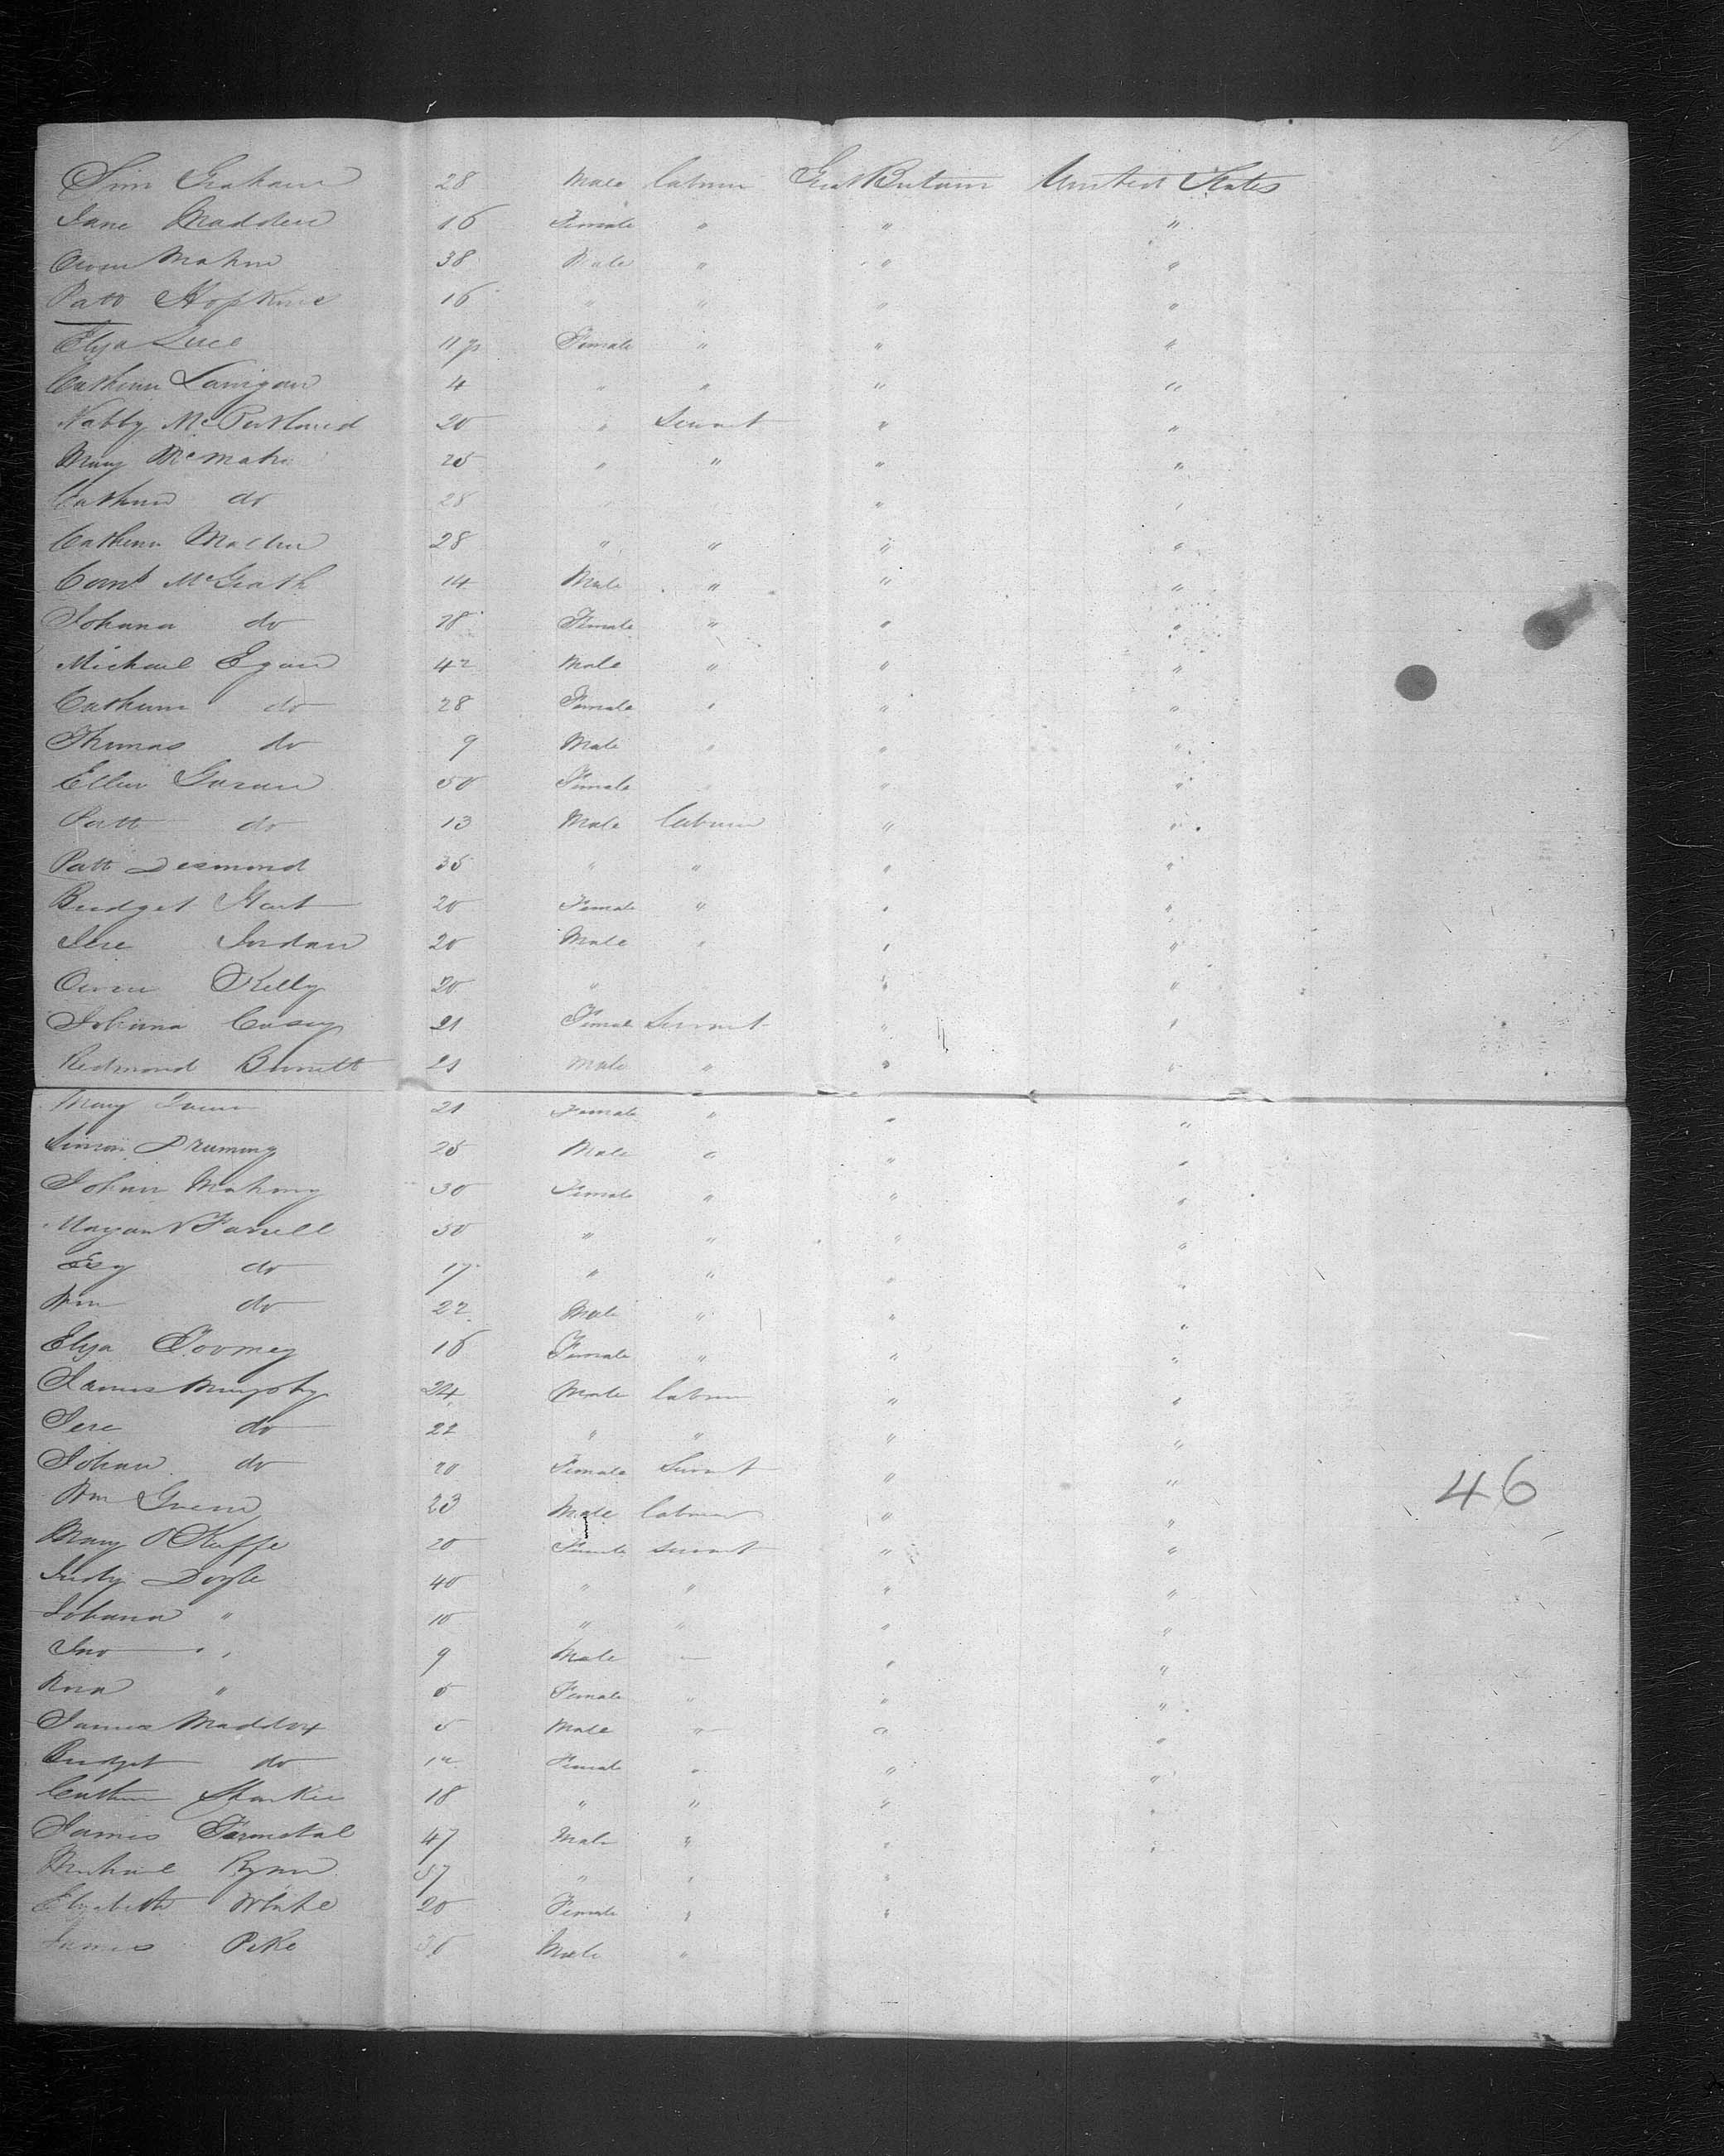 Graham 28 Male labour Great Britain United States
Jane Madden 16 Female " " "
Owen Mahon 38 Male " " "
Patt Hopkins 16 " " " "
Eliza 11 Female " " "
Catherin Lanigan 4 " " " "
Nabby Mc 20 " Servant " "
Mary McMahn 25 " " " "
Catherin do 28 " " " "
Catherin 28 " " " "
McGrath 14 Male " " "
Johana do 28 Female " " "
Michael Egan 42 Male " " "
Catherin do 28 Female " " "
Thomas do 9 Male " " "
Ellen 50 Female " " "
Patt do 13 Male labour " "
Patt Desmond 35 " " " "
Bridget Hart 20 Female " " "
Jere Jordan 20 Male " " "
Owen Kelly 20 " " "
Johana Casey 21 Female Servant " "
Redmond 21 Male " " "
Mary 21 Female " " "
Simon 25 Male " " "
Johan Mahony 30 Female " " "
Farrell 50 " " " "
do 17 " " " "
Wm do 22 Male " " "
Eliza Toomey 16 Female " " "
James Murphy 24 Male labour " "
Jere do 22 " " " "
Johan do 20 Female Servant " "
Wm 23 Male labour " "
Mary OKeffe 20 Female servant " "
Judy Doyle 40 " " " "
Johana " 10 " " " "
Jno " 9 Male — " "
" 5 Female " " "
James Maddox 5 Male " " "
Bridget do Female " " "
Catherin 18 " " " "
James 47 Male " " "
Michael 37 " " "
Elizabeth White 20 Female " "
James Pike Male "
46